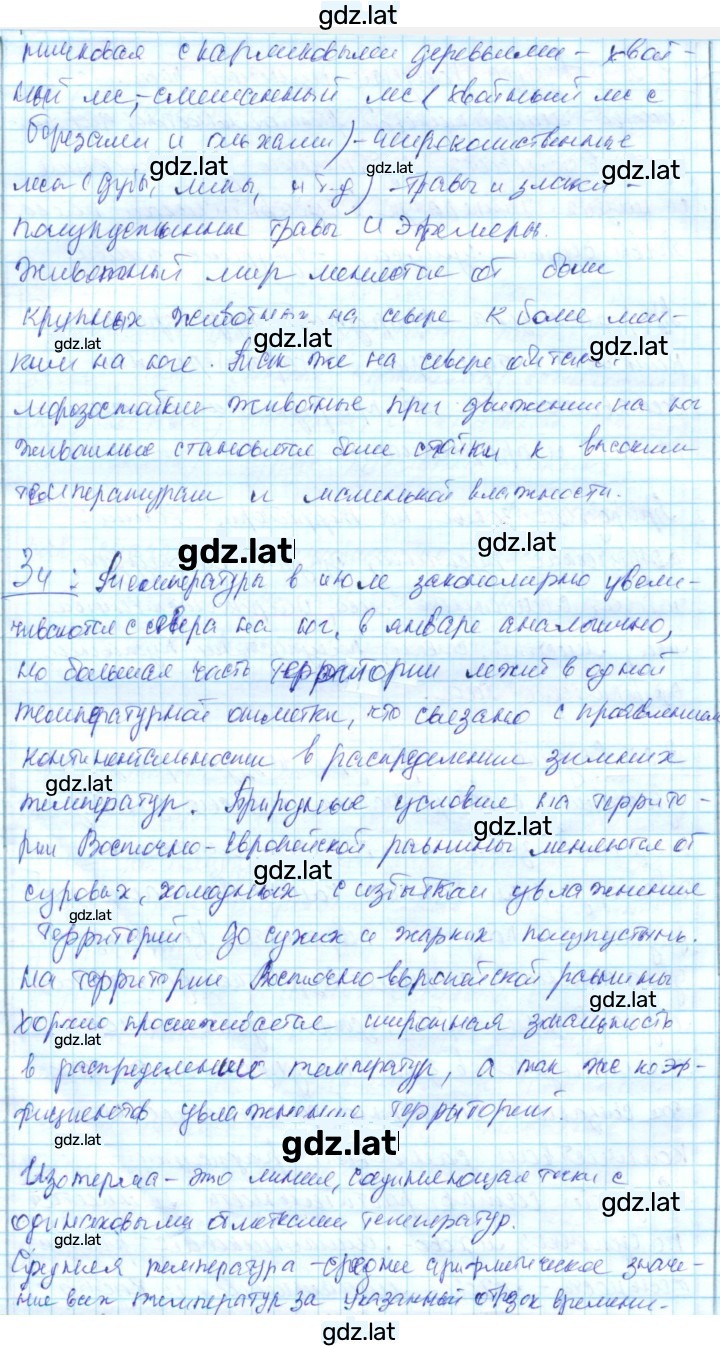 gdz.lat
с карликовыми деревьями - хвой-
ный лес, - смешанный лес (хвойный лес с
березами и ольхами) - широколиственные
gdz.lat gdz.lat gdz.lat
леса (дубы, липы, и т.д) - травы и злаки -
полупустынные травы и эфемеры.
Животный мир меняется от более
крупных животных на севере к более мел-
gdz.lat gdz.lat gdz.lat
ким на юге. Так же на севере обитают
морозостойкие животные при движении на юг
животные становятся более стойки к высоким
температурам и маленькой влажности.
gdz.lat gdz.lat
З4: Температура в июле закономерно увели-
чиваются с севера на юг, в январе аналогично,
но большая часть территории лежит в одной
температурной отметки, что связано с проявлением
континентальности в распределении зимних
gdz.lat
температур. Природные условие на террито-
gdz.lat
рии Восточно-Европейской равнины меняются от
gdz.lat
суровых, холодных с избытком увлажнения
gdz.lat
территорий до сухих и жарких полупустынь.
На территории Восточно-европейской равнины
gdz.lat
хорошо прослеживается широтная зональность
gdz.lat
в распределение температур, а так же коэф-
фициентов увлажнению территорий.
gdz.lat gdz.lat
Изотерма - это линия, соединяющая точки с
gdz.lat
одинаковыми отметками температур.
gdz.lat
Средняя температура - среднее арифметическое значе-
ние всех температур за указанный отрезок времени.
gdz.lat